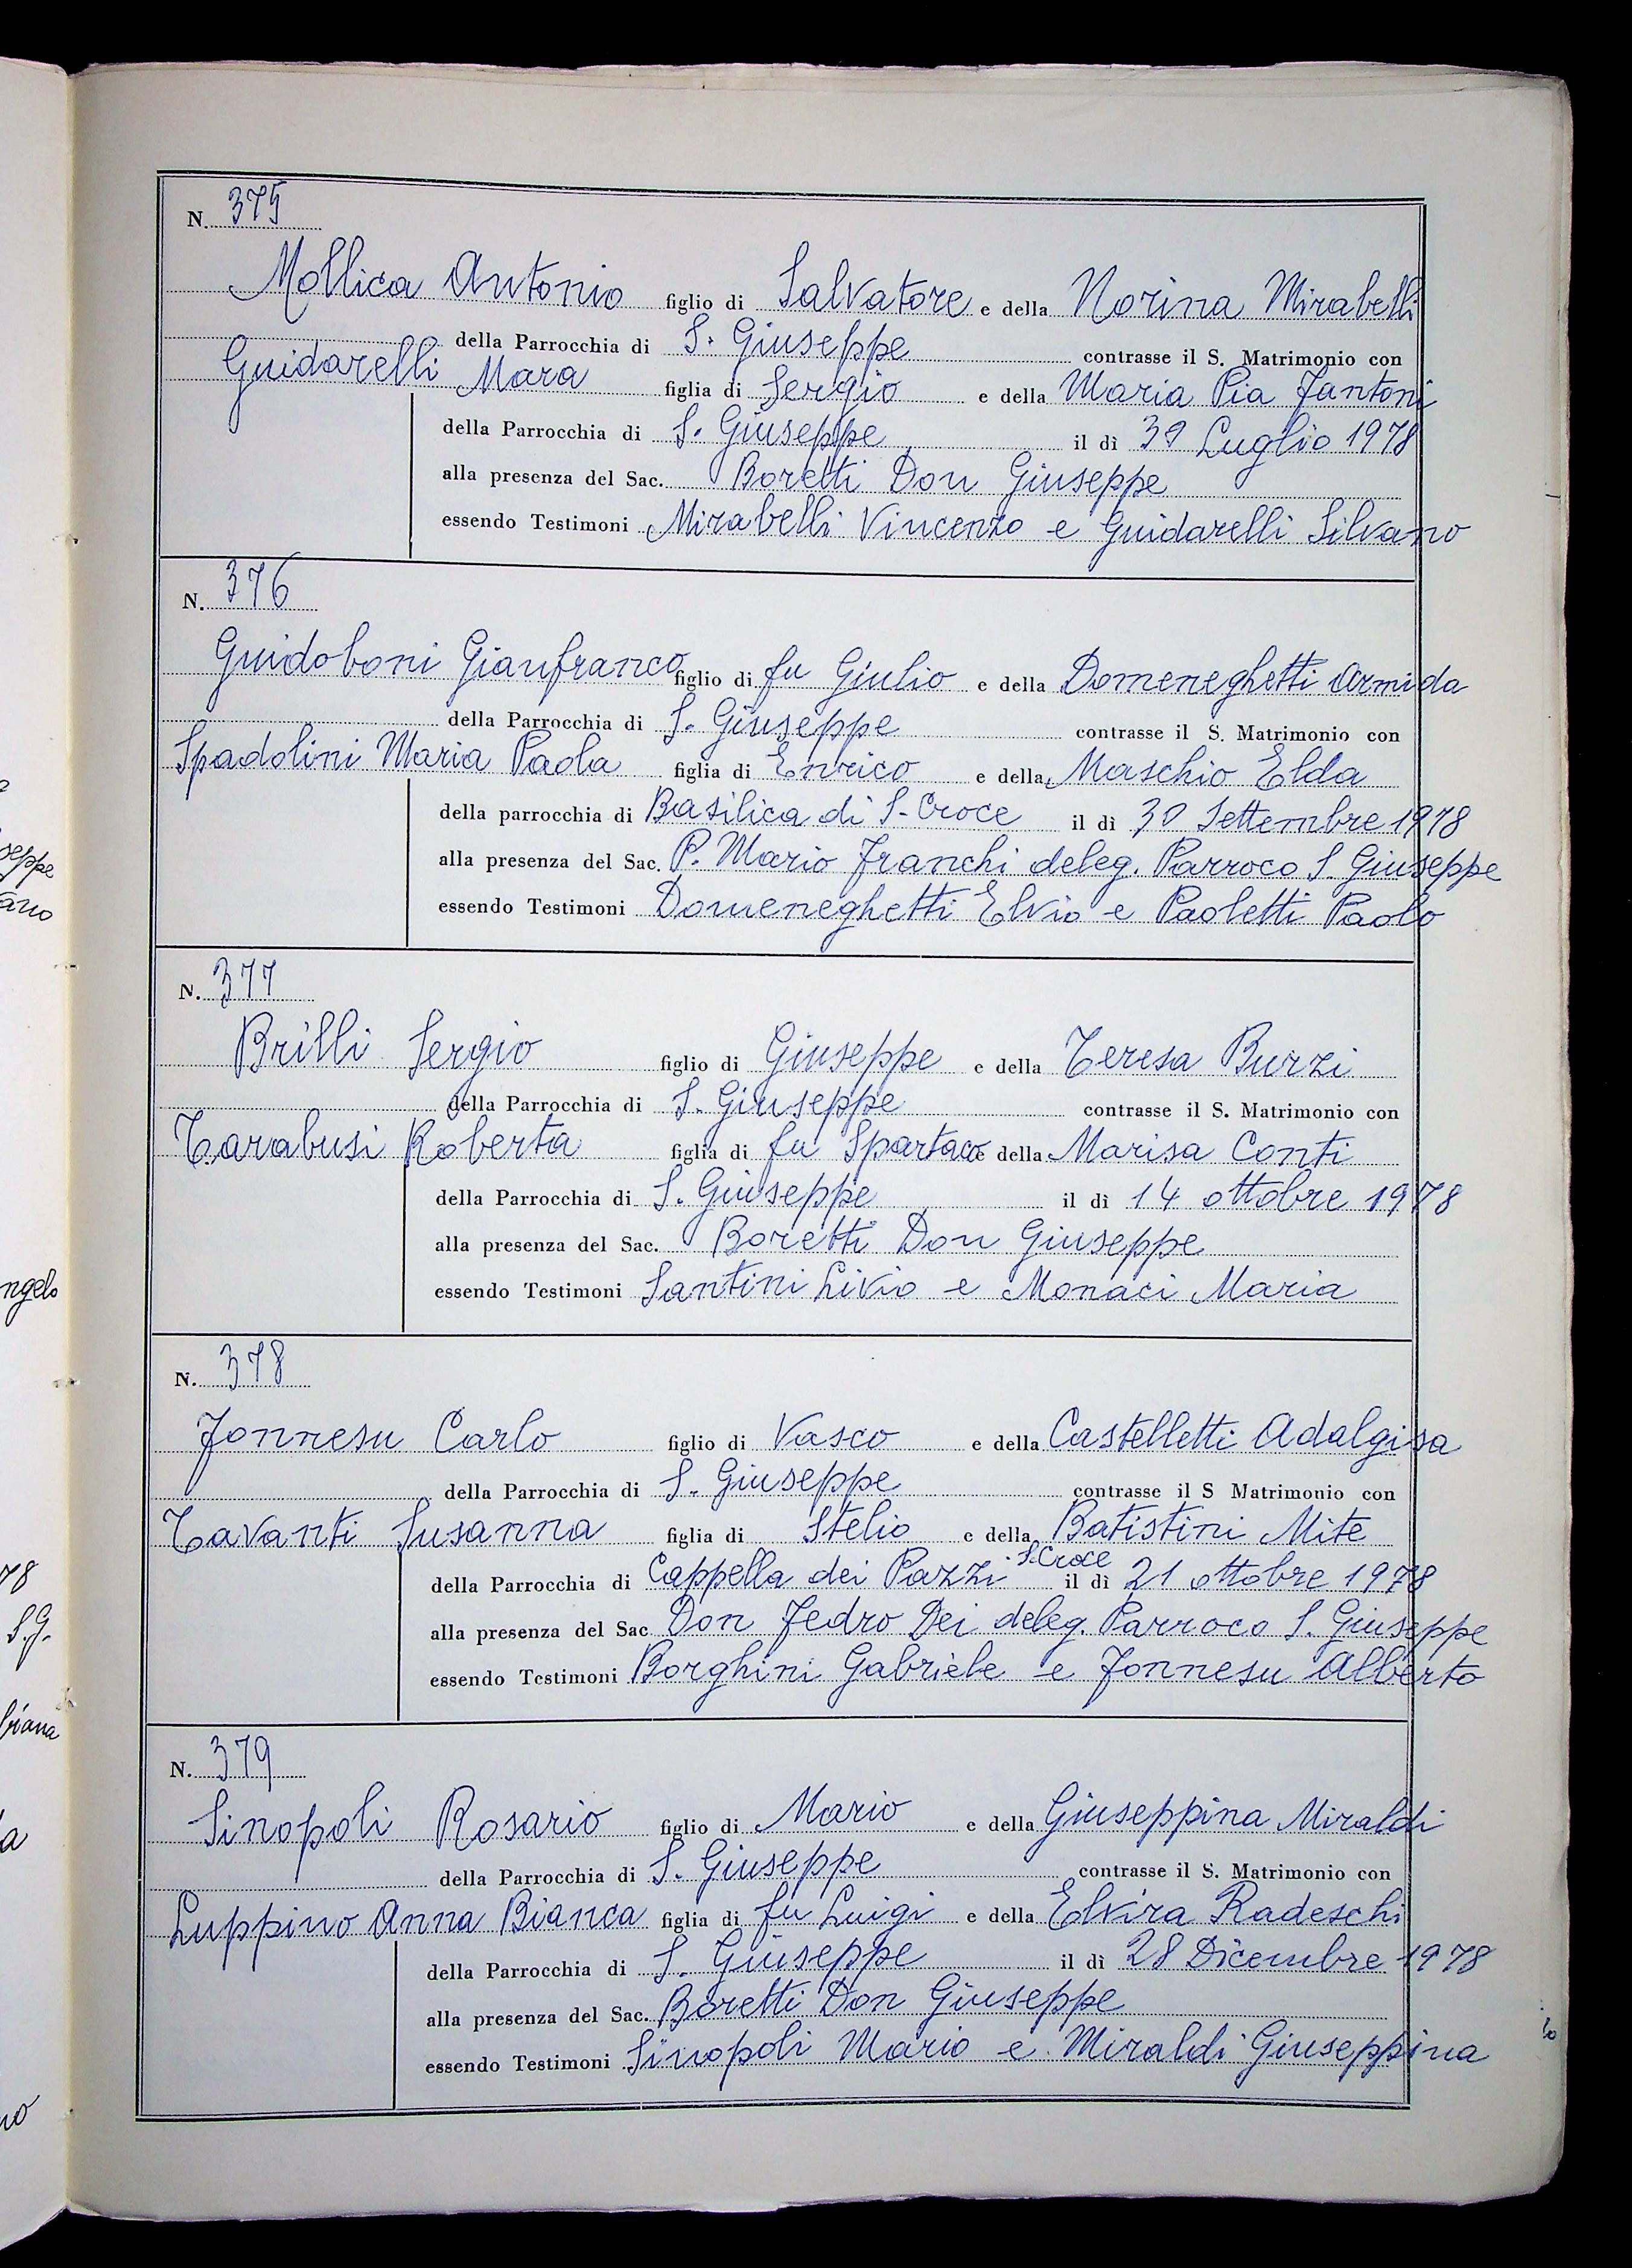 N. 375
Mollica Antonio figlio di Salvatore e della Norina Mirabelli
della Parrocchia di S. Giuseppe contrasse il S. Matrimonio con
Guidarelli Mara figlia di Sergio e della Maria Pia Fantoni
della Parrocchia di S. Giuseppe il dì 30 Luglio 1978
alla presenza del Sac. Boretti Don Giuseppe
essendo Testimoni Mirabelli Vincenzo e Guidarelli Silvano
N. 376
Guidoboni Gianfranco figlio di fu Giulio e della Domeneghetti Armida
della Parrocchia di S. Giuseppe contrasse il S. Matrimonio con
Spadolini Maria Paola figlia di Enrico e della Maschio Elda
della parrocchia di Basilica di S. Croce il dì 30 Settembre 1978
alla presenza del Sac. P. Mario Franchi deleg. Parroco S. Giuseppe
essendo Testimoni Domeneghetti Elvio e Paoletti Paolo
N. 377
Brilli Sergio figlio di Giuseppe e della Teresa Burzi
della Parrocchia di S. Giuseppe contrasse il S. Matrimonio con
Tarabusi Roberta figlia di fu Spartaco e della Marisa Conti
della Parrocchia di S. Giuseppe il dì 14 ottobre 1978
alla presenza del Sac. Boretti Don Giuseppe
essendo Testimoni Santini Livio e Monaci Maria
N. 378
Fonnesu Carlo figlio di Vasco e della Castelletti Adalgisa
della Parrocchia di S. Giuseppe contrasse il S Matrimonio con
Tavanti Susanna figlia di Stelio e della Batistini Mite
della Parrocchia di Cappella dei Pazzi S. Croce il dì 21 ottobre 1978
alla presenza del Sac Don Fedro Dei deleg. Parroco S. Giuseppe
essendo Testimoni Borghini Gabriele e Fonnesu Alberto
N. 379
Sinopoli Rosario figlio di Mario e della Giuseppina Miraldi
della Parrocchia di S. Giuseppe contrasse il S. Matrimonio con
Luppino Anna Bianca figlia di fu Luigi e della Elvira Radeschi
della Parrocchia di S. Giuseppe il dì 28 Dicembre 1978
alla presenza del Sac. Boretti Don Giuseppe
essendo Testimoni Sinopoli Mario e Miraldi Giuseppina